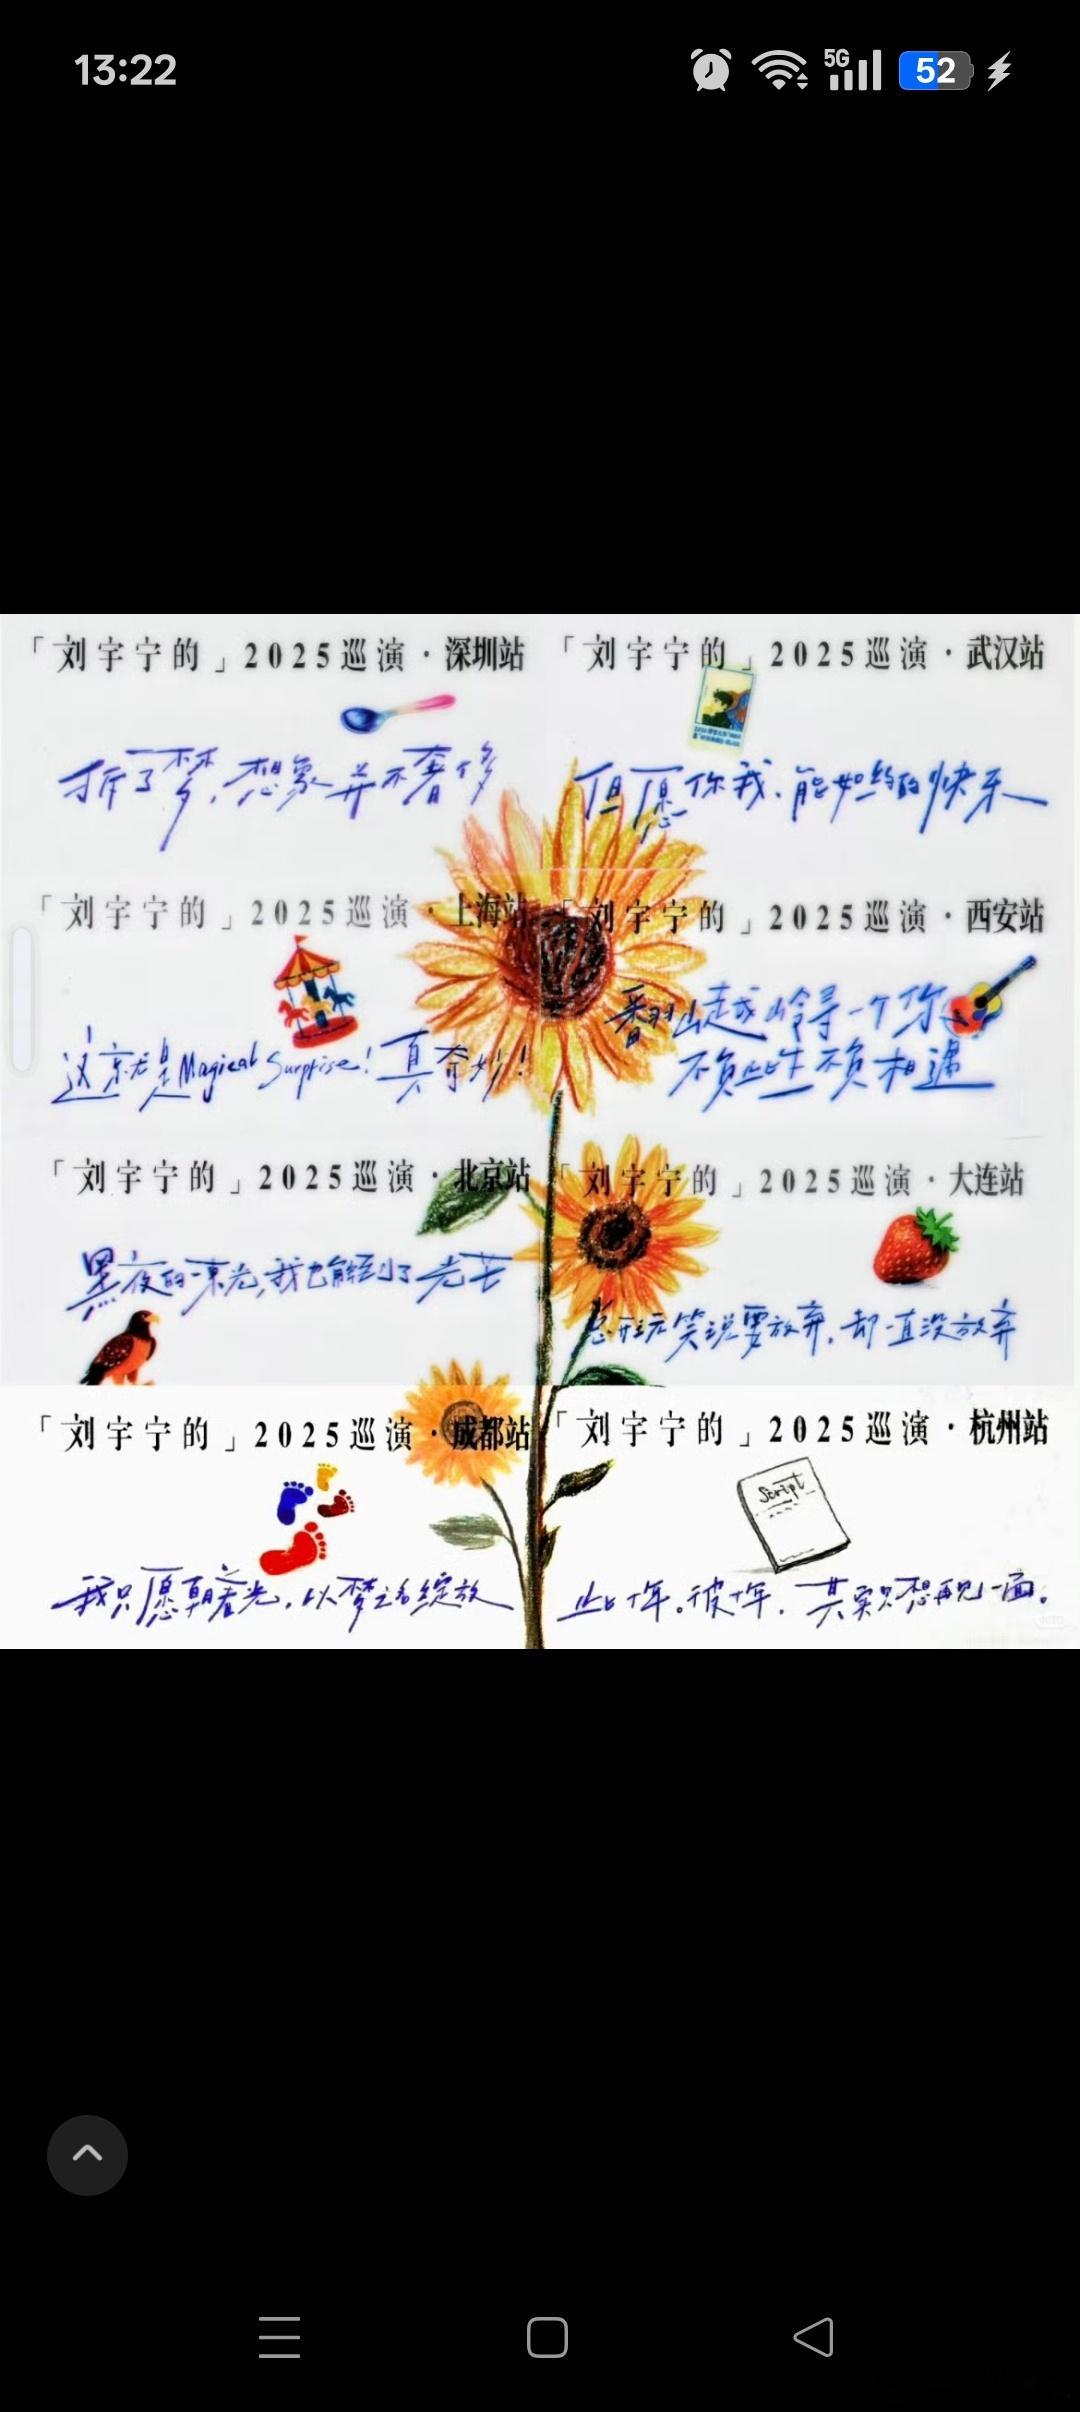 13:22
5G
52
「刘宇宁的」2025巡演·深圳站
拆了梦,想象并不奢侈
「刘宇宁的」2025巡演·武汉站
但愿你我,能如约的快乐
「刘宇宁的」2025巡演·上海站
这就是Magical Surprise!真奇妙!
「刘宇宁的」2025巡演·西安站
翻山越岭寻一个你
不负此生不负相遇
「刘宇宁的」2025巡演·北京站
黑夜的一束光,我也能到了光芒
「刘宇宁的」2025巡演·大连站
总开玩笑说要放弃,却一直没放弃
「刘宇宁的」2025巡演·成都站
我只愿朝着光,以梦之名绽放
「刘宇宁的」2025巡演·杭州站
Script
此十年。彼十年,其实只想再见一面。